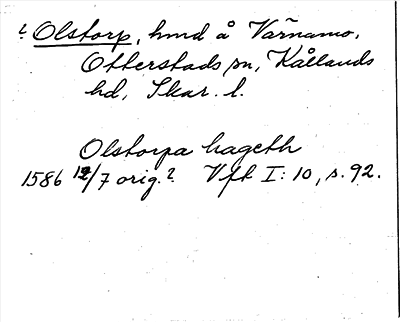 ? Olstorp, hmd å Värnamo,
Otterstads sn, Kållands
hd, Skar. l.
Olstorpa hageth
1586 12/7 orig.? Vft I: 10, s. 92.